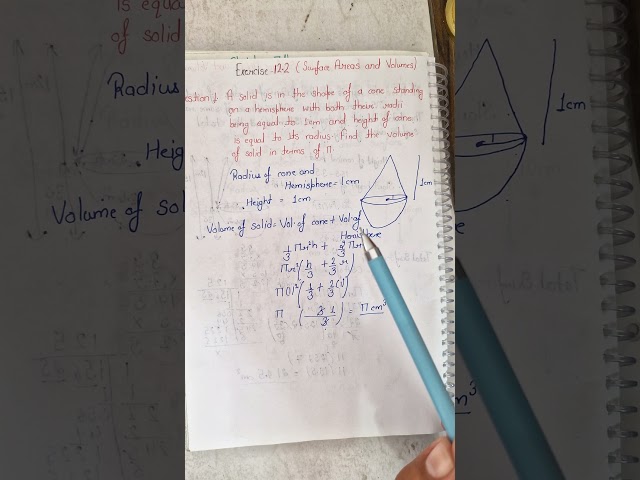 Exercise 12.2 (Surface Areas and Volumes)
A solid is in the shape of a cone standing
on a hemisphere with both their radii
being equal to 1cm and height of cone
is equal to its radius. Find the volume
of solid in terms of Π.
Radius of cone and
Hemisphere = 1cm
Height = 1cm
1cm
Volume of solid = Vol. of cone + Vol. of
1/3 Πr²h + 2/3
Πr² (h/3 + 2/3 r)
Π(1)² (1/3 + 2/3 (1))
Π (3 1/3) = Π cm³
is equa
of solid
Radius
Height
Volume of s
1cm
m³